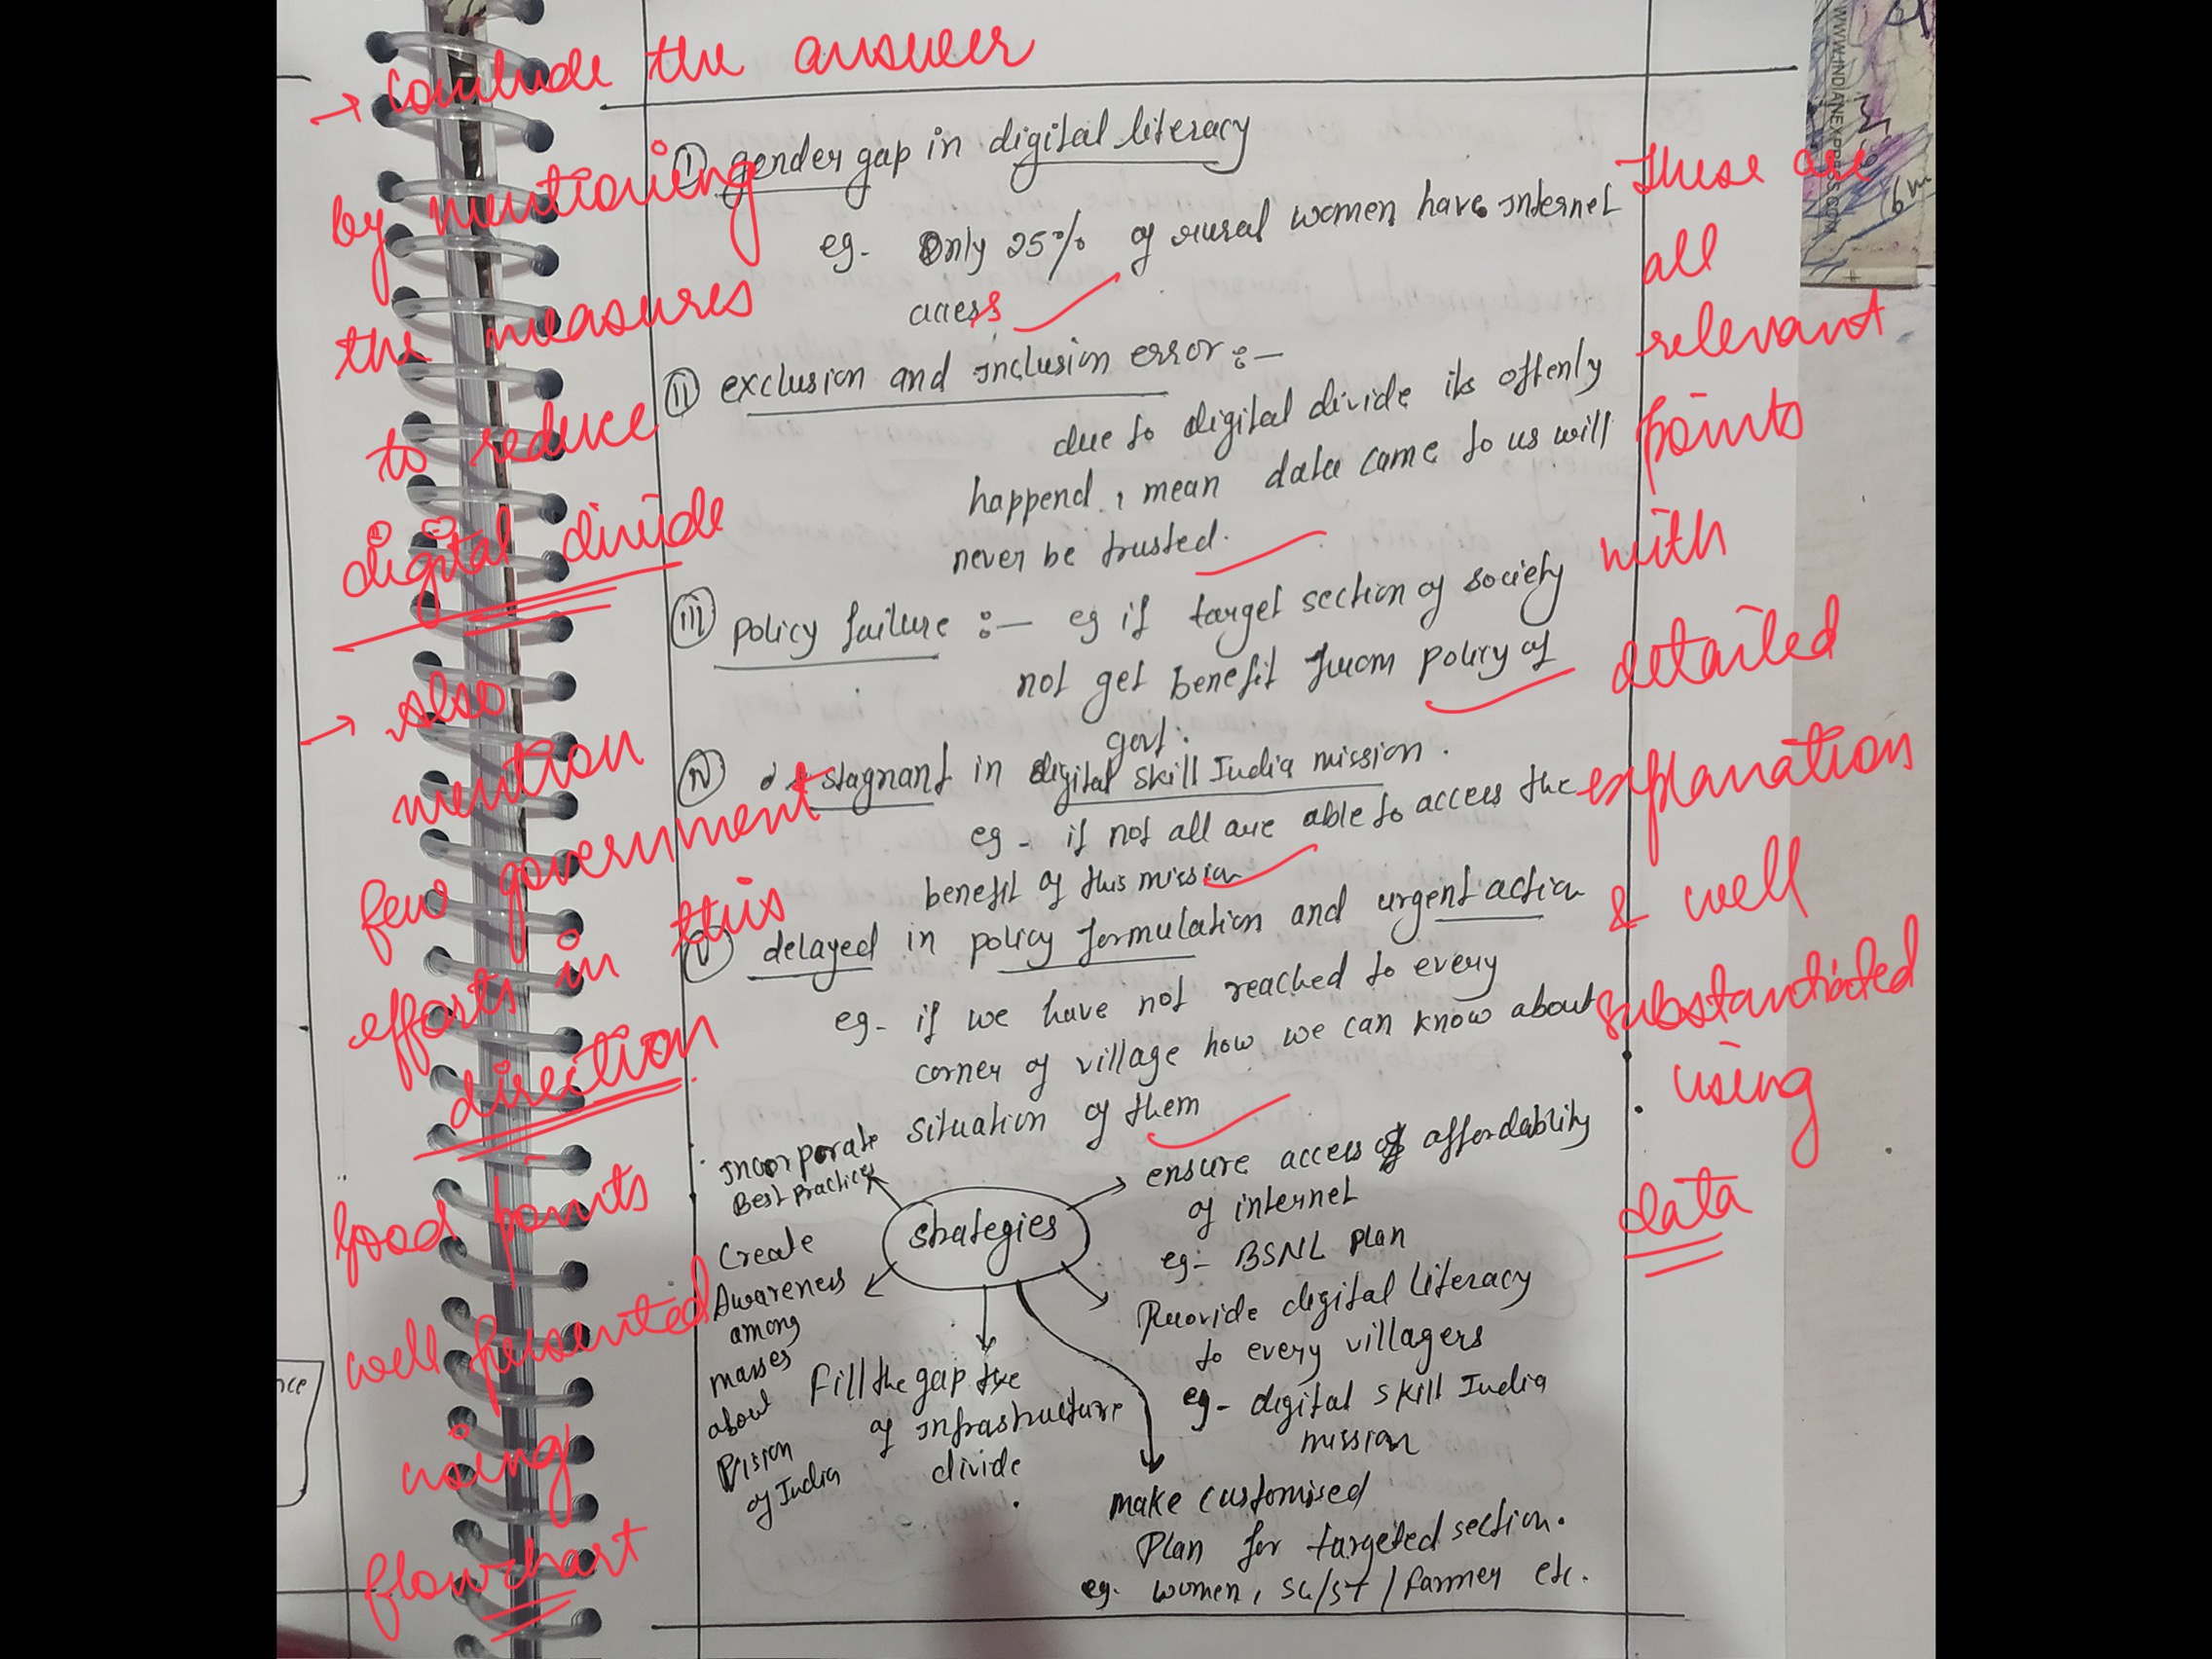 → Conclude the answer
by mentioning
the measures
to reduce
digital divide
→ Also
mention
few government
efforts in this
direction.
Good points
well presented
using
flowchart
① gender gap in digital literacy
eg. Only 25% of rural women have internet
access
② exclusion and inclusion error :-
due to digital divide its oftenly
happend, mean data came to us will
never be trusted.
③ policy failure :- eg if target section of society
not get benefit from policy of
govt.
④ stagnant in digital skill India mission.
eg - if not all are able to access the
benefit of this mission
⑤ delayed in policy formulation and urgent action
eg- if we have not reached to every
corner of village how we can know about
situation of them
strategies
Incorporate
Best practices
Create
Awareness
among
masses
about
Vision
of India
fill the gap the
of infrastructure
divide
ensure access of affordablity
of internet
eg- BSNL plan
Provide digital literacy
to every villagers
eg- digital skill India
mission
make customised
Plan for targeted section.
eg. women, SC/ST / farmer etc.
These are
all
relevant
points
with
detailed
explanation
& well
substantiated
using
data
WWW.INDIANEXPRESS.COM
nce